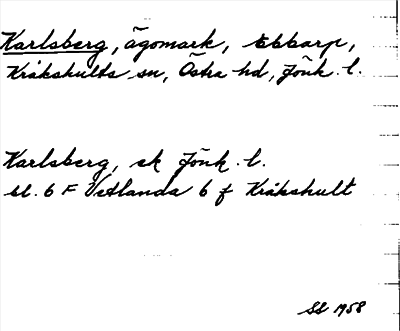 Karlsberg, ägomark, Ebbarp,
Kråkshults sn, Östra hd, Jönk. l.
Karlsberg, ek Jönk. l.
bl. 6 F Vetlanda 6 f Kråkshult
SS 1958